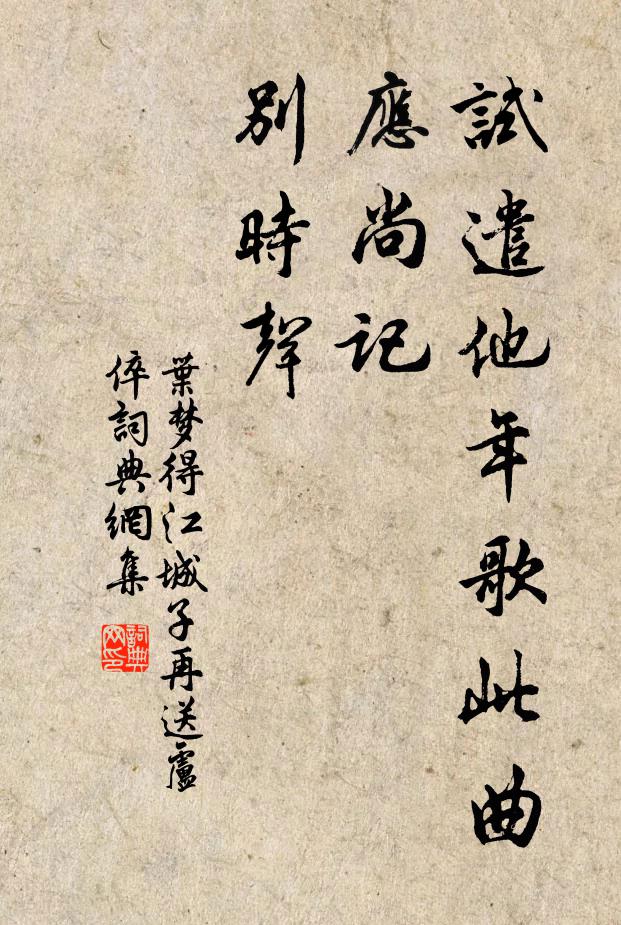 試遣他年歌此曲
應尚記
別時聲
葉梦得江城子再送盧
倅詞典網集
詞典
网印